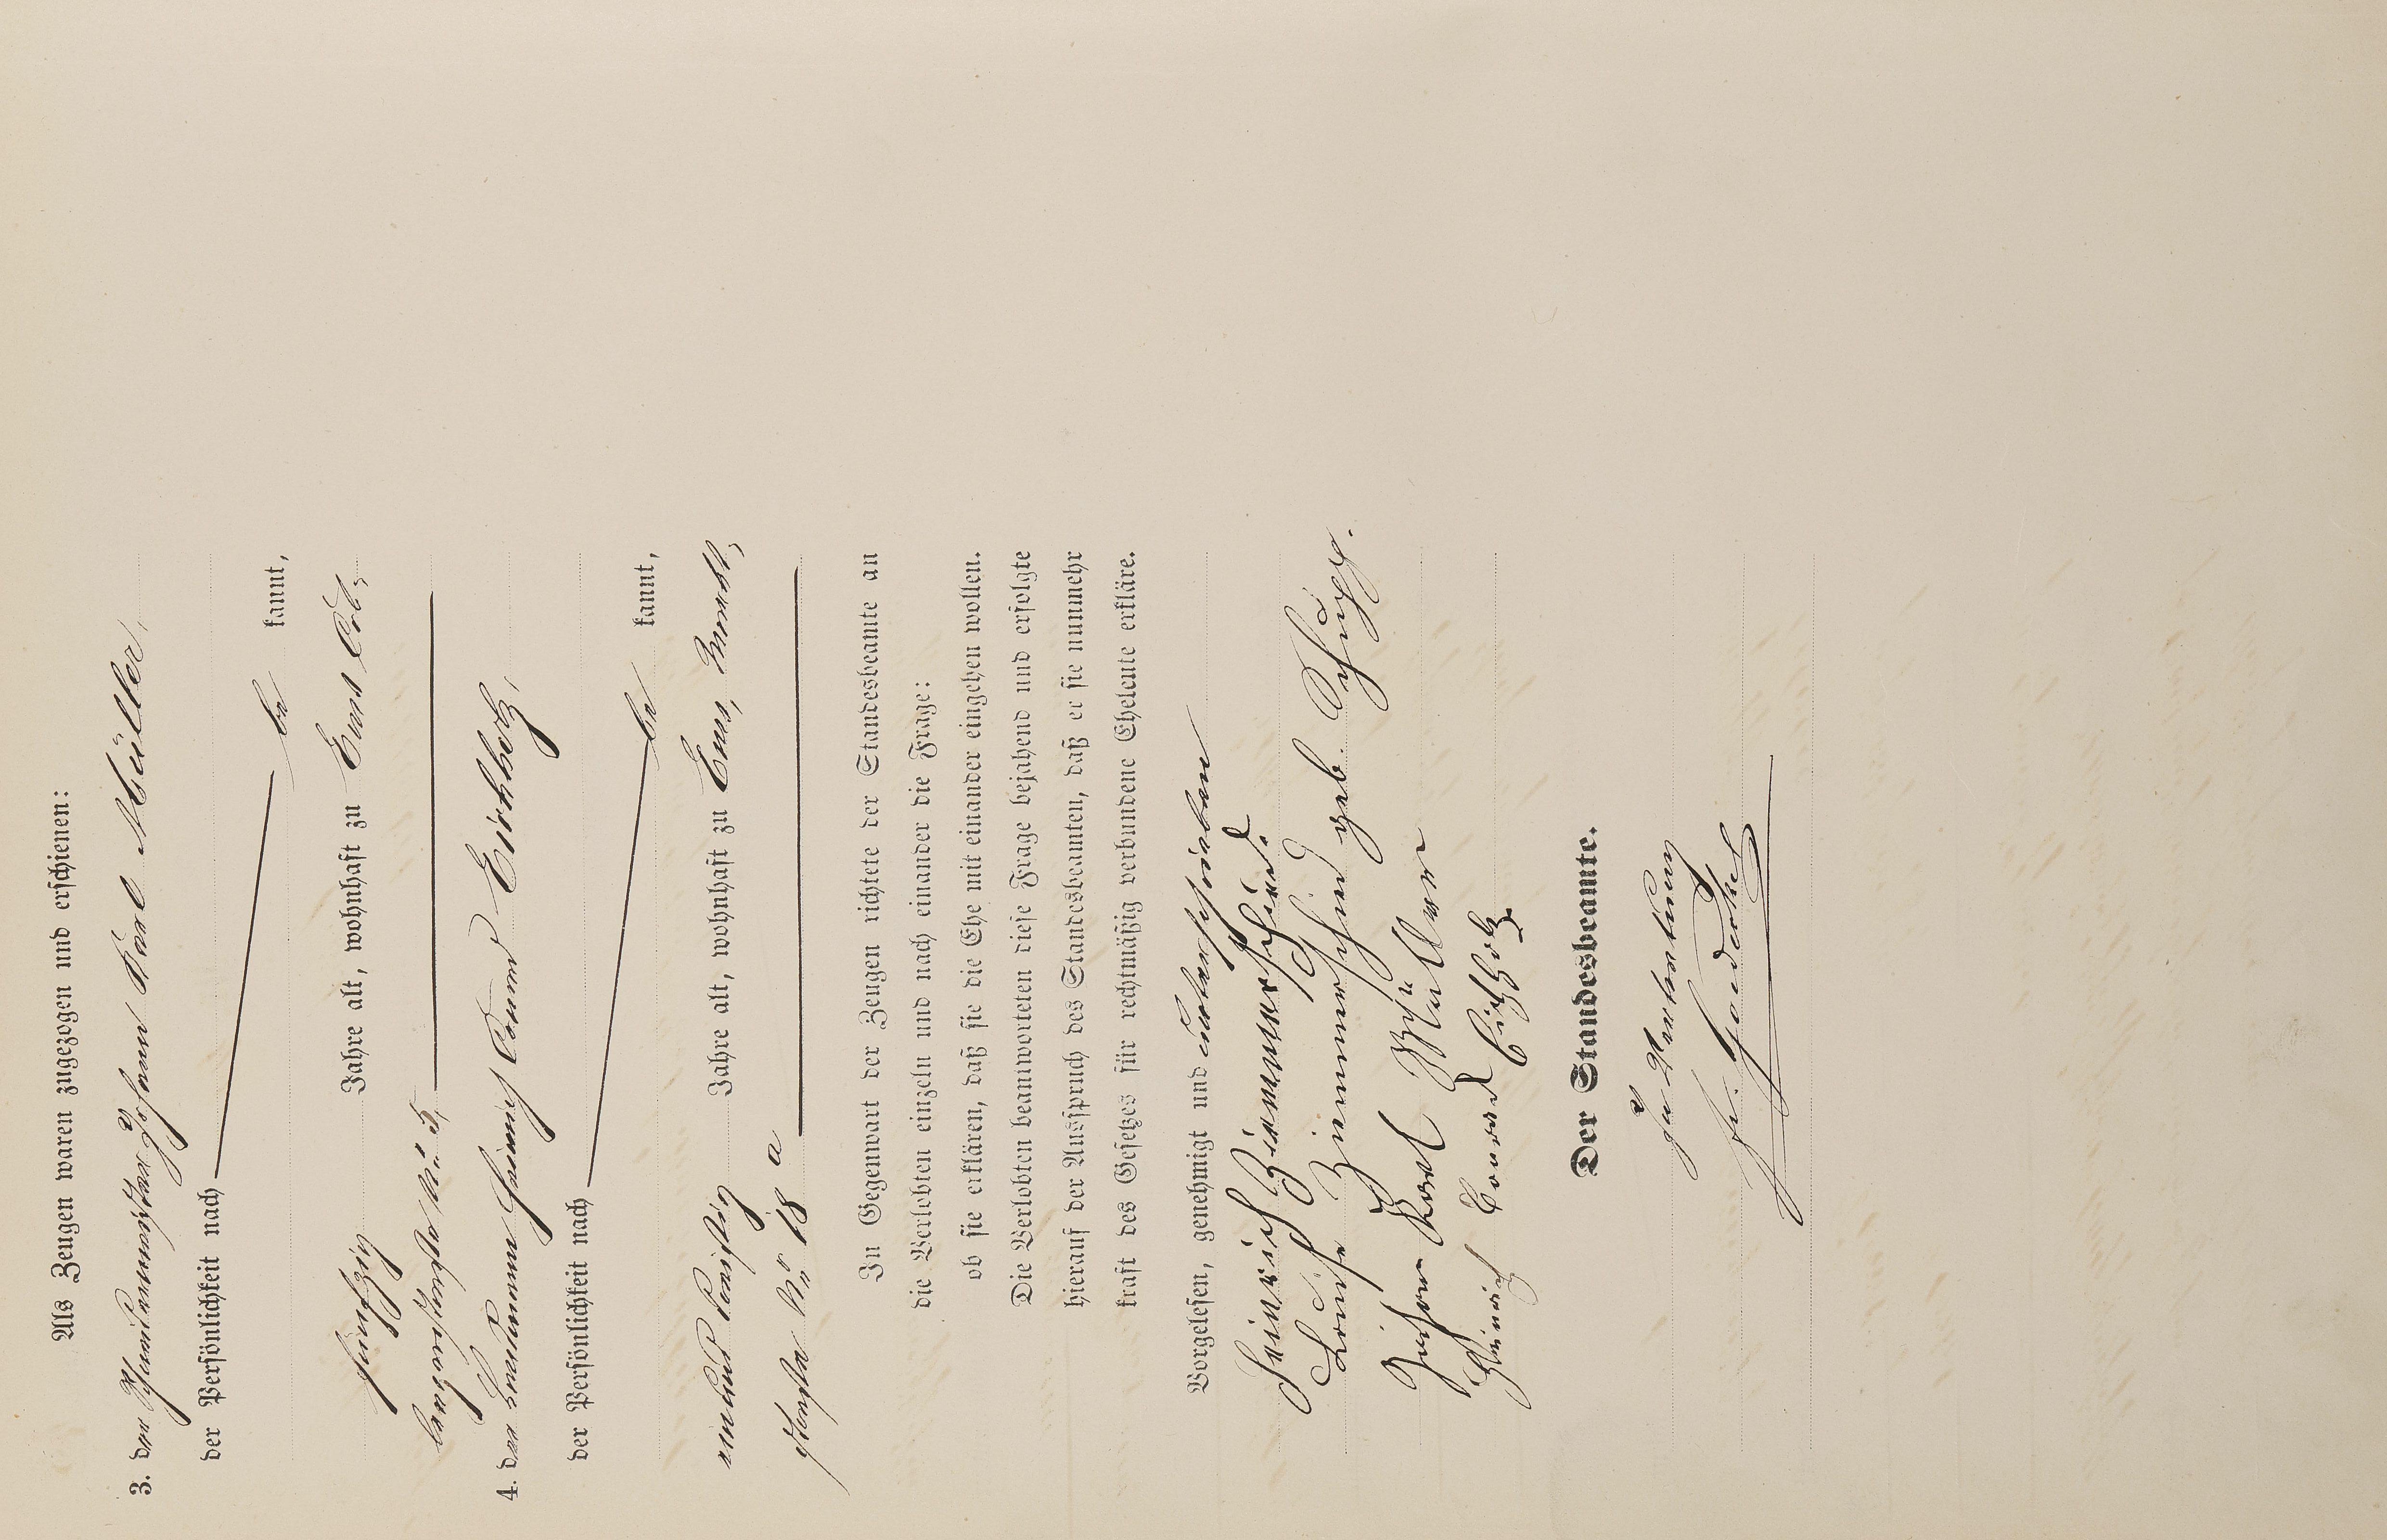 Als Zeugen waren zugezogen und erschienen:
3. der Johann Karl Müller,
der Persönlichkeit nach
be kannt,
fünfzig Jahre alt, wohnhaft zu
No 5,
4. der Heinrich Conrad Eichholz,
der Persönlichkeit nach
be kannt,
einund Jahre alt, wohnhaft zu Ems,
No 18 a
In Gegenwart der Zeugen richtete der Standesbeamte an
die Verlobten einzeln und nach einander die Frage:
ob sie erklären, daß sie die Ehe mit einander eingehen wollen.
Die Verlobten beantworteten diese Frage bejahend und erfolgte
hierauf der Ausspruch des Standesbeamten, daß er sie nunmehr
kraft des Gesetzes für rechtmäßig verbundene Eheleute erkläre.
Vorgelesen, genehmigt und unterschrieben
Heinrich Zimmerschied
Louise Zimmerschied geb. Schupp.
Johann Karl Müller
Heinrich Conrad Eichholz.
Der Standesbeamte.
In Vertretung